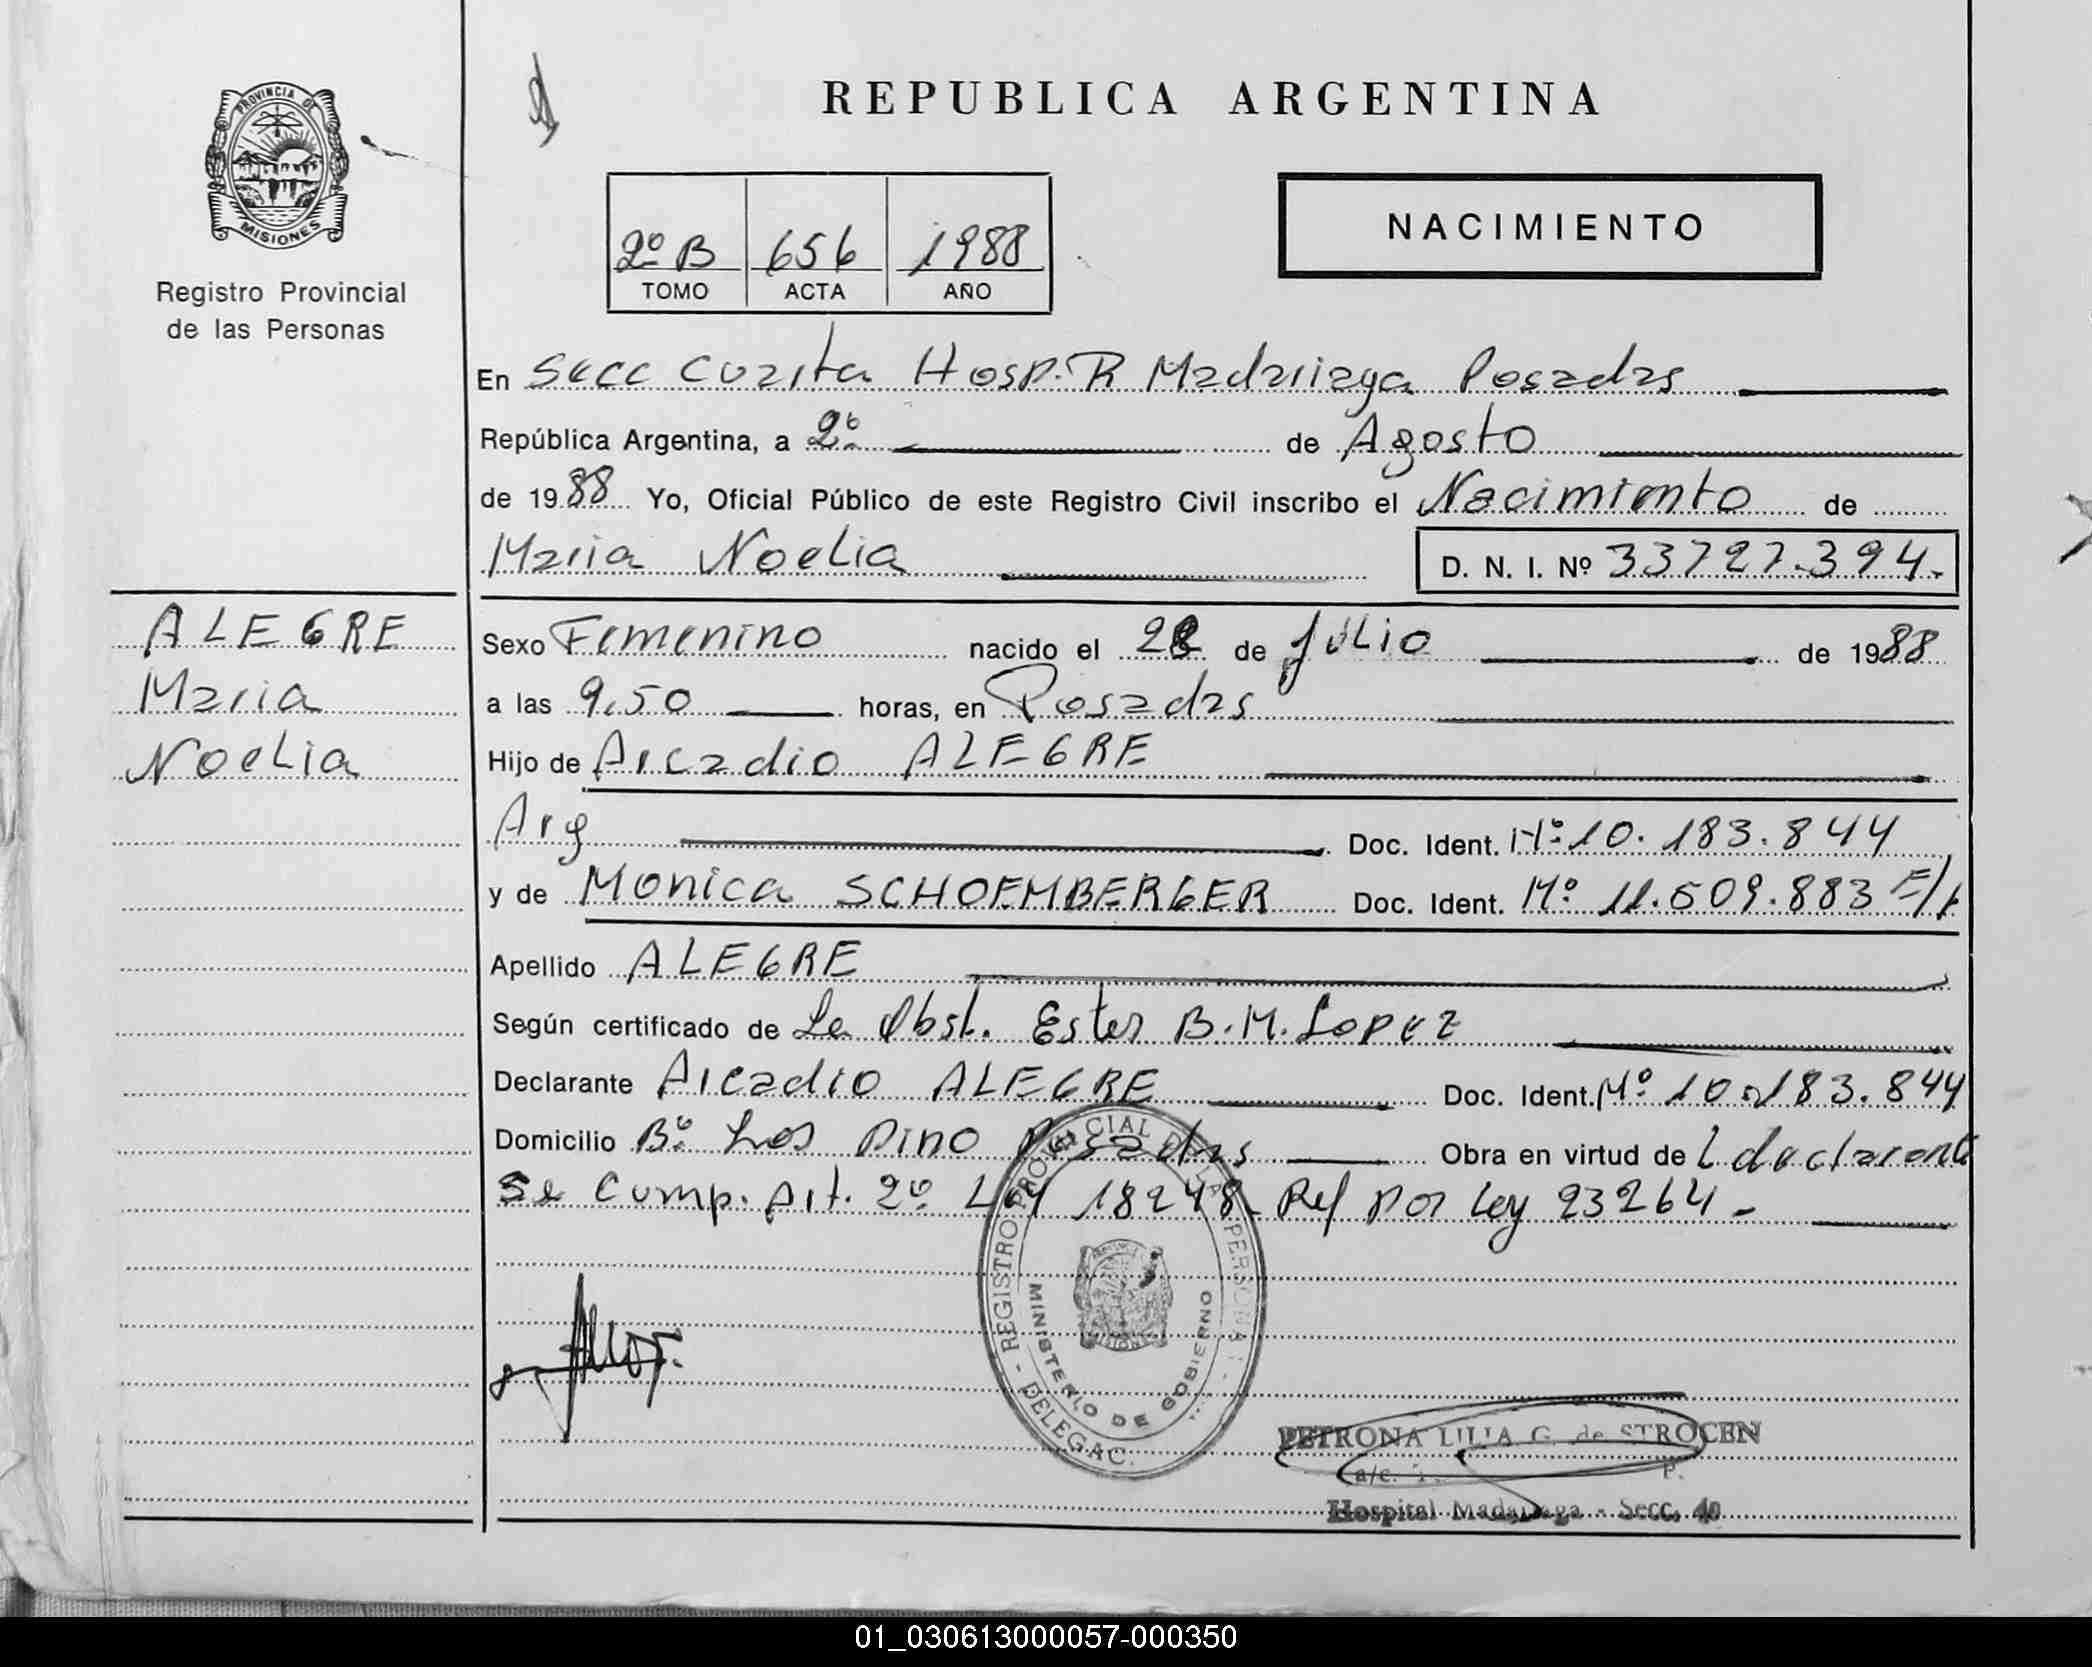 REPUBLICA ARGENTINA
PROVINCIA DE
MISIONES
Registro Provincial
de las Personas
2º B 656 1988
TOMO ACTA AÑO
NACIMIENTO
En Secc Cuarta Hosp. R Madariaga Posadas
República Argentina, a 2º de Agosto
de 1988 Yo, Oficial Público de este Registro Civil inscribo el Nacimiento de
Maria Noelia D. N. I. Nº 33727.394.
ALEGRE
Maria
Noelia
Sexo Femenino nacido el 28 de Julio de 1988
a las 9,50 horas, en Posadas
Hijo de Arcadio ALEGRE
Arg Doc. Ident. Mº 10.183.844
y de Monica SCHOEMBERGER Doc. Ident. Mº 11.509.883
Apellido ALEGRE
Según certificado de La Obst. Ester B. M. Lopez
Declarante Arcadio ALEGRE Doc. Ident. Mº 10.183.844
Domicilio Bº Los Pino Posadas Obra en virtud de L declarante
Se Cump. Art. 2º Ley 18248. Ref por Ley 23264.-
REGISTRO PROVINCIAL DE LAS PERSONAS - DELEGAC.
MINISTERIO DE GOBIERNO
PETRONA LILIA G. de STROCEN
a/c.
Hospital Madariaga - Secc. 4a
01_030613000057-000350